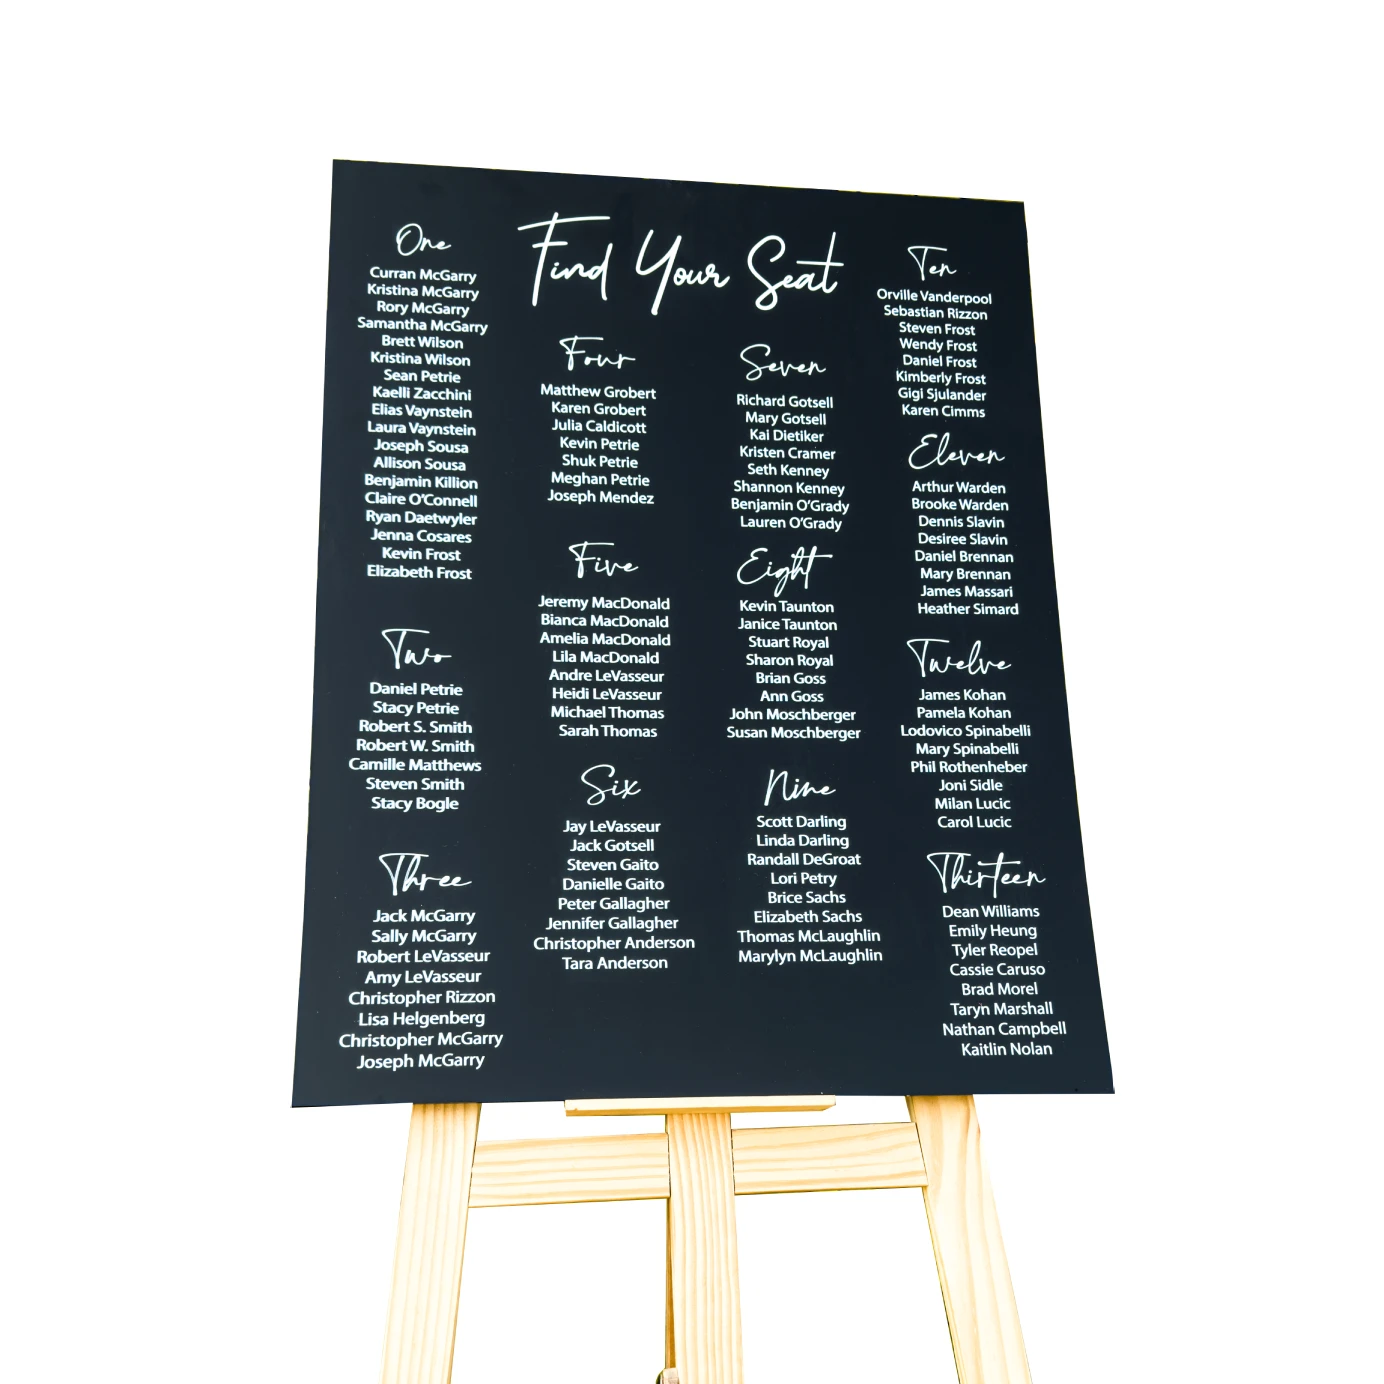 Find Your Seat
One
Curran McGarry
Kristina McGarry
Rory McGarry
Samantha McGarry
Brett Wilson
Kristina Wilson
Sean Petrie
Kaelli Zacchini
Elias Vaynstein
Laura Vaynstein
Joseph Sousa
Allison Sousa
Benjamin Killion
Claire O'Connell
Ryan Daetwyler
Jenna Cosares
Kevin Frost
Elizabeth Frost
Two
Daniel Petrie
Stacy Petrie
Robert S. Smith
Robert W. Smith
Camille Matthews
Steven Smith
Stacy Bogle
Three
Jack McGarry
Sally McGarry
Robert LeVasseur
Amy LeVasseur
Christopher Rizzon
Lisa Helgenberg
Christopher McGarry
Joseph McGarry
Four
Matthew Grobert
Karen Grobert
Julia Caldicott
Kevin Petrie
Shuk Petrie
Meghan Petrie
Joseph Mendez
Five
Jeremy MacDonald
Bianca MacDonald
Amelia MacDonald
Lila MacDonald
Andre LeVasseur
Heidi LeVasseur
Michael Thomas
Sarah Thomas
Six
Jay LeVasseur
Jack Gotsell
Steven Gaito
Danielle Gaito
Peter Gallagher
Jennifer Gallagher
Christopher Anderson
Tara Anderson
Seven
Richard Gotsell
Mary Gotsell
Kai Dietiker
Kristen Cramer
Seth Kenney
Shannon Kenney
Benjamin O'Grady
Lauren O'Grady
Eight
Kevin Taunton
Janice Taunton
Stuart Royal
Sharon Royal
Brian Goss
Ann Goss
John Moschberger
Susan Moschberger
Nine
Scott Darling
Linda Darling
Randall DeGroat
Lori Petry
Brice Sachs
Elizabeth Sachs
Thomas McLaughlin
Marylyn McLaughlin
Ten
Orville Vanderpool
Sebastian Rizzon
Steven Frost
Wendy Frost
Daniel Frost
Kimberly Frost
Gigi Sjulander
Karen Cimms
Eleven
Arthur Warden
Brooke Warden
Dennis Slavin
Desiree Slavin
Daniel Brennan
Mary Brennan
James Massari
Heather Simard
Twelve
James Kohan
Pamela Kohan
Lodovico Spinabelli
Mary Spinabelli
Phil Rothenheber
Joni Sidle
Milan Lucic
Carol Lucic
Thirteen
Dean Williams
Emily Heung
Tyler Reopel
Cassie Caruso
Brad Morel
Taryn Marshall
Nathan Campbell
Kaitlin Nolan